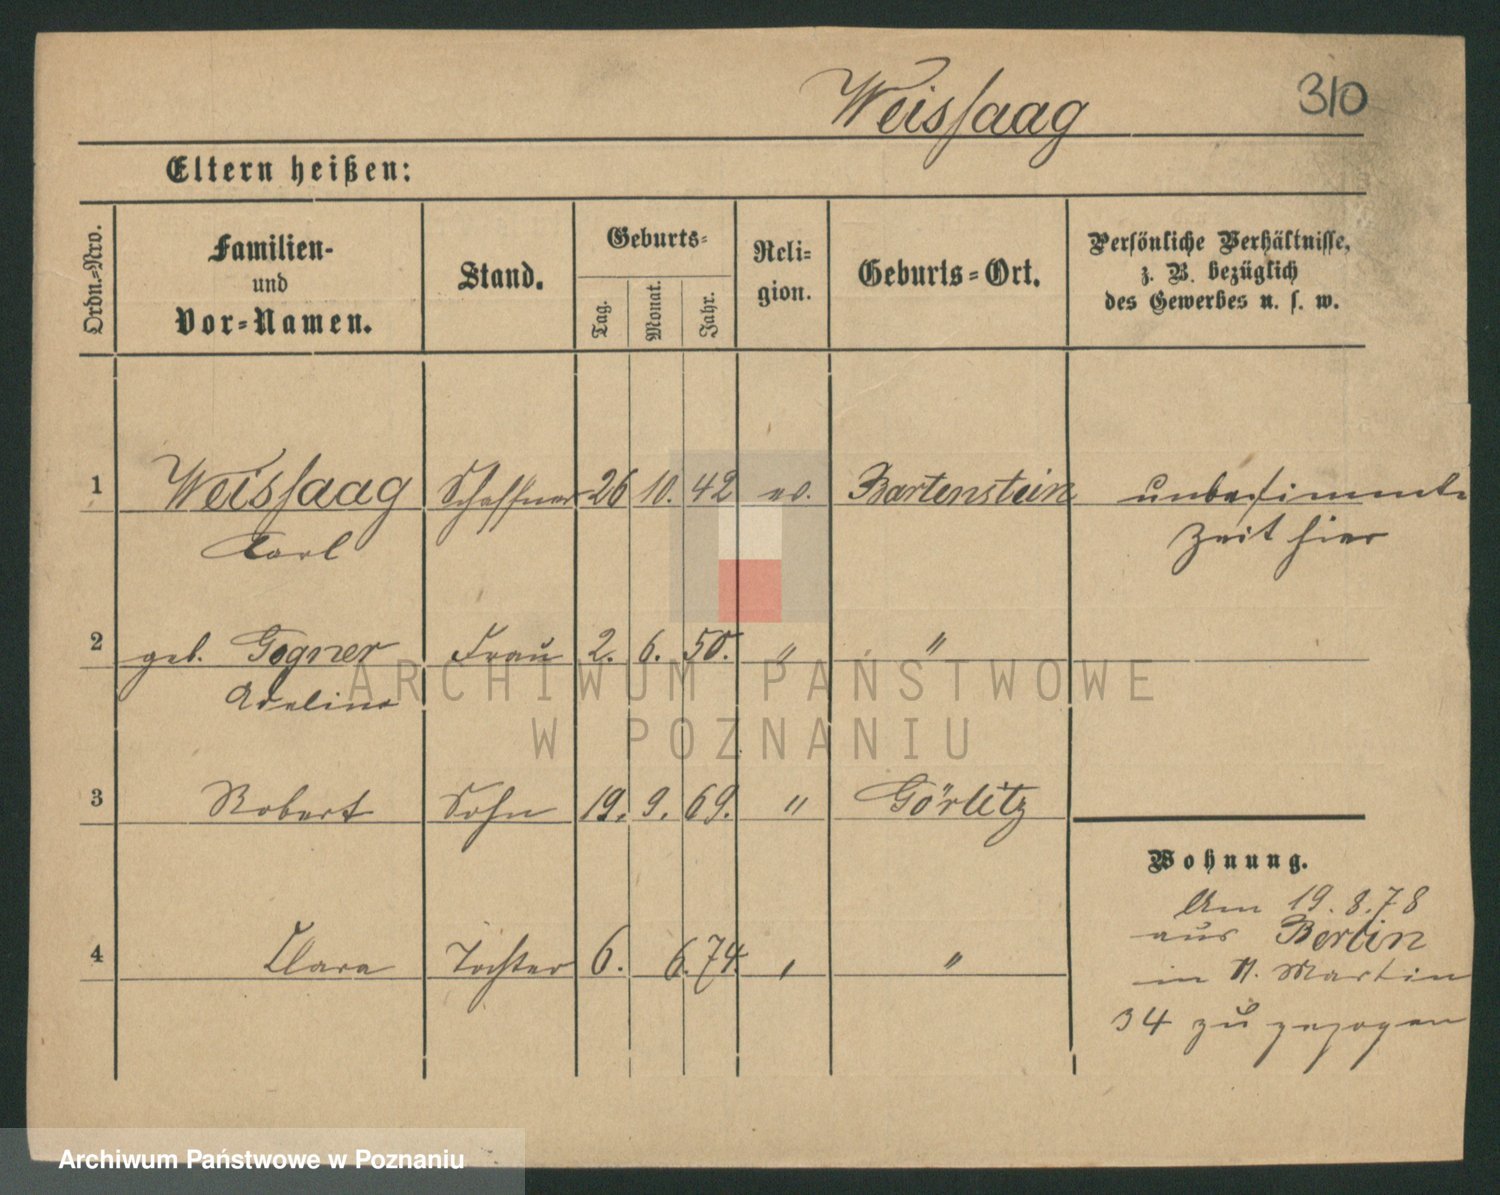 Weissaag 310
Eltern heißen:
Ordn.=Nro.
Familien-
und
Vor=Namen.
Stand.
Geburts=
Tag.
Monat.
Jahr.
Reli=
gion.
Geburts=Ort.
Persönliche Verhältnisse,
z. B. bezüglich
des Gewerbes u. s. w.
1 Weissaag Schaffner 26 10. 42 ev. Bartenstein unbestimmte
Carl Zeit hier
2 geb. Gogner Frau 2. 6. 50. " "
Adeline
3 Robert Sohn 19. 9. 69. " Görlitz
Wohnung.
Am 19.8.78
aus Berlin
4 Clara Tochter 6. 6. 74 " "
in St. Martin
34 zu gezogen
ARCHIWUM PAŃSTWOWE
W POZNANIU
Archiwum Państwowe w Poznaniu